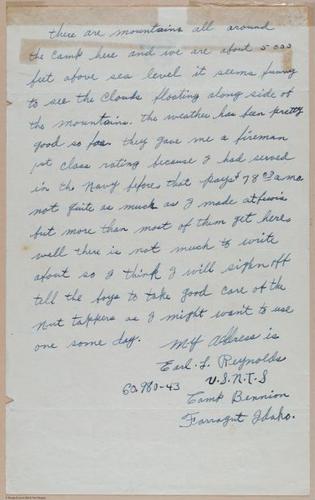 there are mountains all around
the camp here and we are about 5000
feet above sea level it seems funny
to see the clouds floating along side of
the mountains. the weather has ben pretty
good so far. they gave me a fireman
1st class rating because I had served
in the Navy before that pays $78 00 a mo
not quite as much as I made at
but more than most of them get here
well there is not much to write
about so I think I will sign off
tell the boys to take good care of the
nut tappers as I might want to use
one some day. My address is
Earl. L. Reynolds
63980-43 U.S.N.T.S
Camp Bennion
Farragut Idaho.